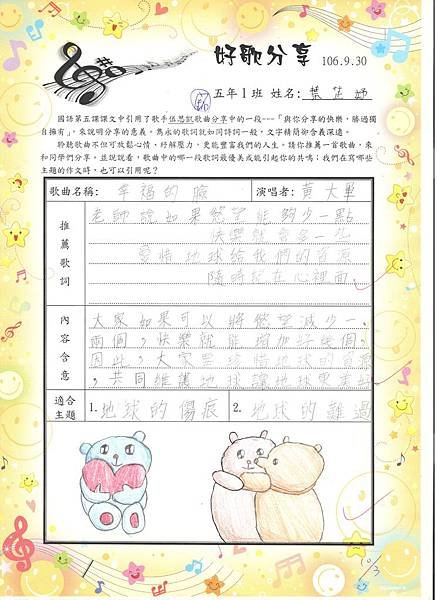 好歌分享 106.9.30
五年1班 姓名:
國語第五課課文中引用了歌手伍思凱歌曲分享中的一段---「與你分享的快樂,勝過獨
自擁有」,來說明分享的意義。雋永的歌詞就如同詩詞一般,文字精簡卻含義深遠。
聆聽歌曲不但可放鬆心情、紓解壓力,更能豐富我們的人生。請你推薦一首歌曲,來
和同學們分享,並說說看,歌曲中的哪一段歌詞最優美或能引起你的共鳴;我們在寫哪些
主題的作文時,也可以引用呢?
歌曲名稱: 幸福的臉 演唱者: 黃大軍
推薦歌詞
老師說如果慾望能夠少一點
快樂就會多一些
愛惜地球給我們的資源
隨時記在心裡面。
內容含意
大家如果可以將慾望減少一、
兩個,快樂就能增加好幾個,
因此,大家要珍惜地球的資源
,共同維護地球讓地球更美好
適合主題
1.地球的傷痕 2.地球的難過
10/3